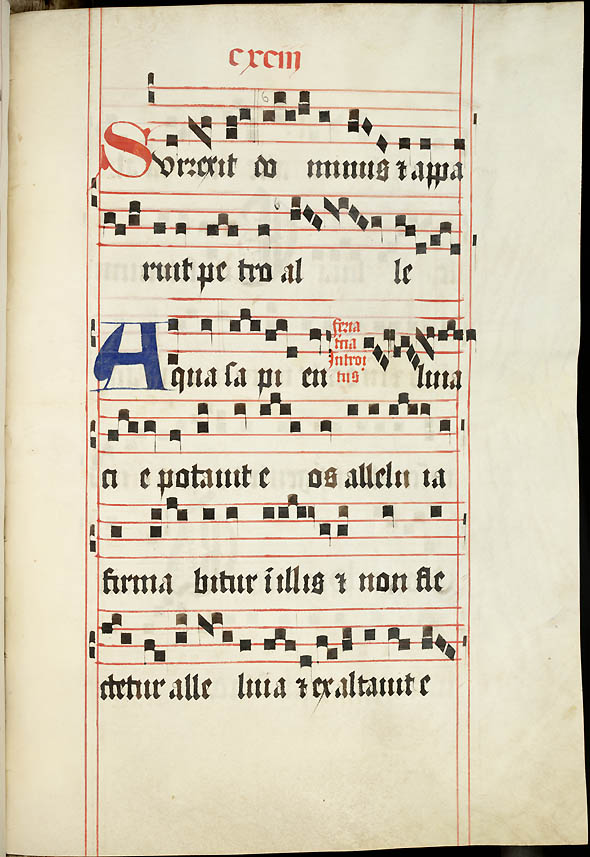 cxciii
Svrrexit do minus ⁊ appa
ruit pe tro al le
luia
feria
iiia
Introi
tus
Aqua sa pi en
ci e potauit e os allelu ia
firma bitur ī illis ⁊ non fle
ctetur alle luia ⁊ exaltauit e